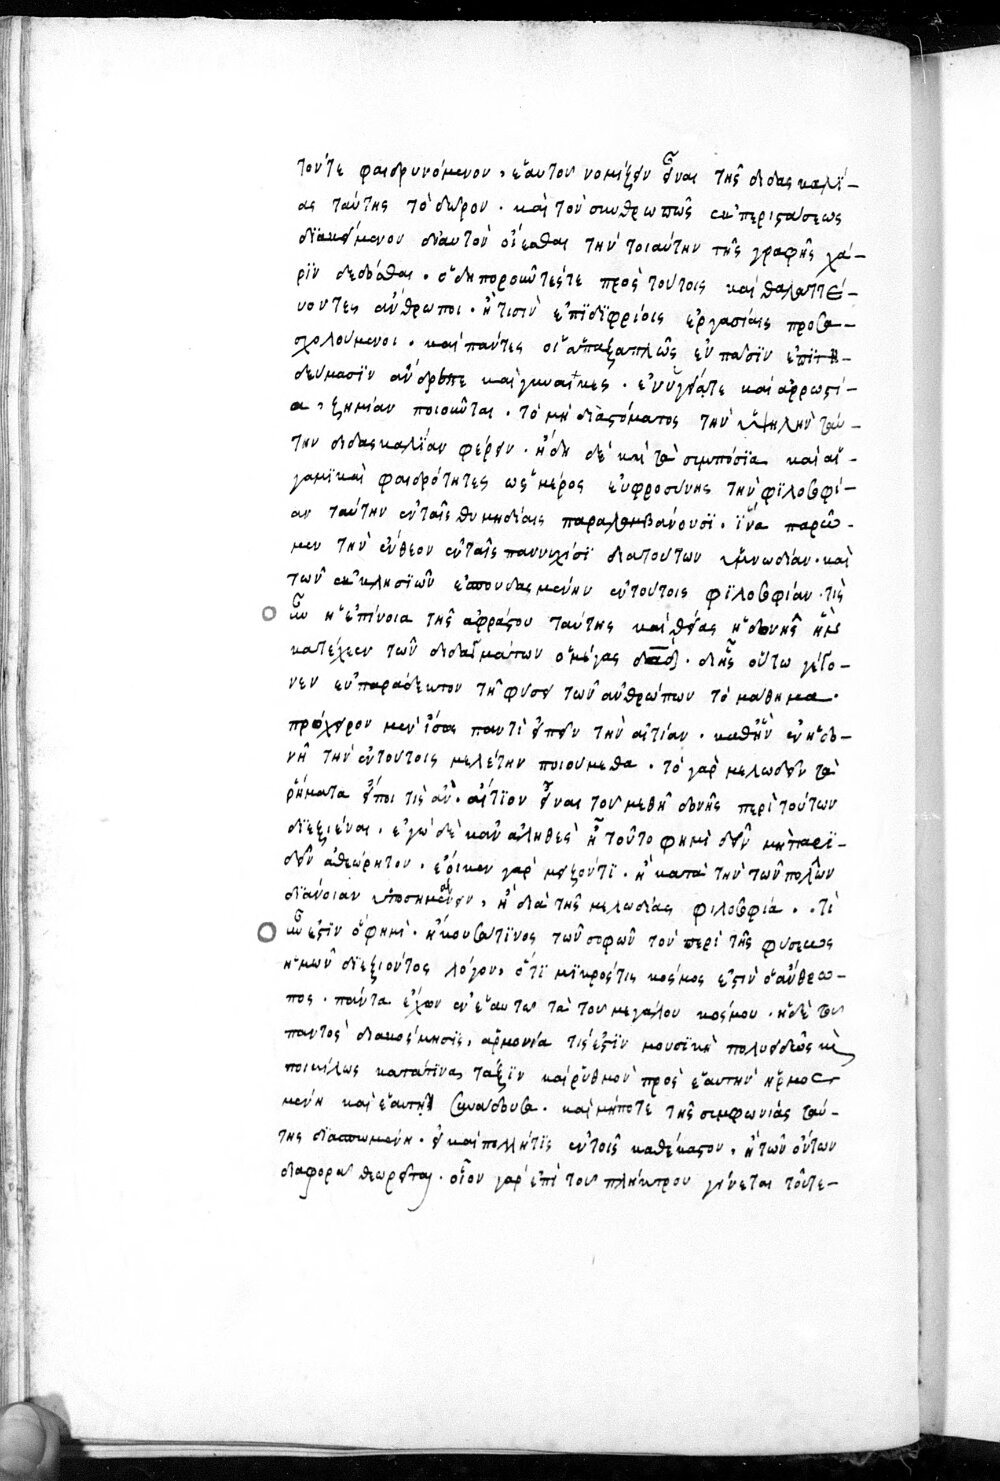 τόν τε φαιδρυνόμενον, ἑαυτοῦ νομίζειν εἶναι τῆς διδασκαλί-
ας ταύτης τὸ δῶρον· καὶ τὸν σκυθρωπῶς ἐκ περιστάσεως
διακείμενον δι' αὐτὸν οἴεσθαι τὴν τοιαύτην τῆς γραφῆς χά-
ριν δεδόσθαι· ὁδοιποροῦντές τε πρὸς τούτοις καὶ θαλαττεύ-
οντες ἄνθρωποι· ἤ τισιν ἐπιδιφρίοις ἐργασίαις προσα-
σχολούμενοι· καὶ πάντες οἱ ἁπαξαπλῶς ἐν πᾶσιν ἐπιτη-
δεύμασιν ἄνδρες τε καὶ γυναῖκες· ἐν ὑγείᾳ τε καὶ ἀρρωστί-
α, ζημίαν ποιοῦνται· τὸ μὴ διὰ στόματος τὴν ὑψηλὴν ταύ-
την διδασκαλίαν φέρειν· ἤδη δὲ καὶ τὰ συμπόσια καὶ αἱ
γαμικαὶ φαιδρότητες ὡς μέρος εὐφροσύνης τὴν φιλοσοφί-
αν ταύτην ἐν ταῖς θυμηδίαις παραλαμβάνουσι· ἵνα παρῶ-
μεν τὴν ἔνθεον ἐν ταῖς παννυχίσι διὰ τούτων ὑμνωδίαν· καὶ
τῶν ἐκκλησιῶν ἐσπουδασμένην ἐν τούτοις φιλοσοφίαν· τίς
οὖν ἡ ἐπίνοια τῆς ἀφράστου ταύτης καὶ θείας ἡδονῆς ἧς
κατέχεεν τῶν διδαγμάτων ὁ μέγας δαδ· δι' ἧς οὕτω γέγο-
νεν εὐπαράδεκτον τῇ φύσει τῶν ἀνθρώπων τὸ μάθημα·
πρόχειρον μὲν ἴσως παντὶ εἰπεῖν τὴν αἰτίαν· καθ' ἣν ἐν ἡδο-
νῇ τὴν ἐν τούτοις μελέτην ποιούμεθα· τὸ γὰρ μελωδεῖν τὰ
ῥήματα εἴποι τις ἂν· αἴτιον εἶναι τοῦ μεθ' ἡδονῆς περὶ τούτων
διεξιέναι· ἐγὼ δὲ κἂν ἀληθὲς ᾖ τοῦτο φημὶ δεῖν μὴ παρι-
δεῖν ἀθεώρητον· ἔοικεν γὰρ μεῖζόν τι· ἢ κατὰ τὴν τῶν πολλῶν
διάνοιαν ὑποσημαίνειν, ἡ διὰ τῆς μελωδίας φιλοσοφία·. τί
οὖν ἐστιν ὅ φημι· ἤκουσά τινος τῶν σοφῶν τὸν περὶ τῆς φύσεως
ἡμῶν διεξιόντος λόγον, ὅτι μικρός τις κόσμος ἐστὶν ὁ ἄνθρω-
πος· πάντα ἔχων ἐν ἑαυτῷ τὰ τοῦ μεγάλου κόσμου· ἡ δὲ τοῦ
παντὸς διακόσμησις, ἁρμονία τίς ἐστιν μουσικὴ πολυειδῶς κὲ
ποικίλως κατά τινα τάξιν καὶ ῥυθμὸν πρὸς ἑαυτὴν ἡρμοσ
μένη καὶ ἑαυτῇ συνάδουσα· καὶ μήποτε τῆς συμφωνίας ταύ-
της διασπωμένη· εἰ καὶ πολλή τις ἐν τοῖς καθέκαστον, ἡ τῶν ὄντων
διαφορὰ θεωρεῖται· οἷον γὰρ ἐπὶ τοῦ πλήκτρου γίνεται τοῦ τε-